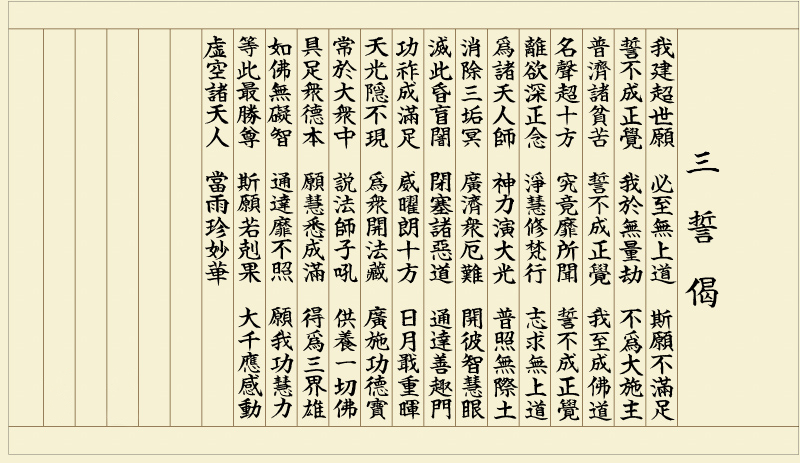 三誓偈
我建超世願 必至無上道 斯願不滿足
誓不成正覺 我於無量劫 不爲大施主
普濟諸貧苦 誓不成正覺 我至成佛道
名聲超十方 究竟靡所聞 誓不成正覺
離欲深正念 淨慧修梵行 志求無上道
爲諸天人師 神力演大光 普照無際土
消除三垢冥 廣濟衆厄難 開彼智慧眼
滅此昏盲闇 閉塞諸惡道 通達善趣門
功祚成滿足 威曜朗十方 日月戢重暉
天光隠不現 爲衆開法藏 廣施功德寶
常於大衆中 說法師子吼 供養一切佛
具足衆德本 願慧悉成滿 得爲三界雄
如佛無礙智 通達靡不照 願我功慧力
等此最勝尊 斯願若剋果 大千應感動
虛空諸天人 當雨珍妙華